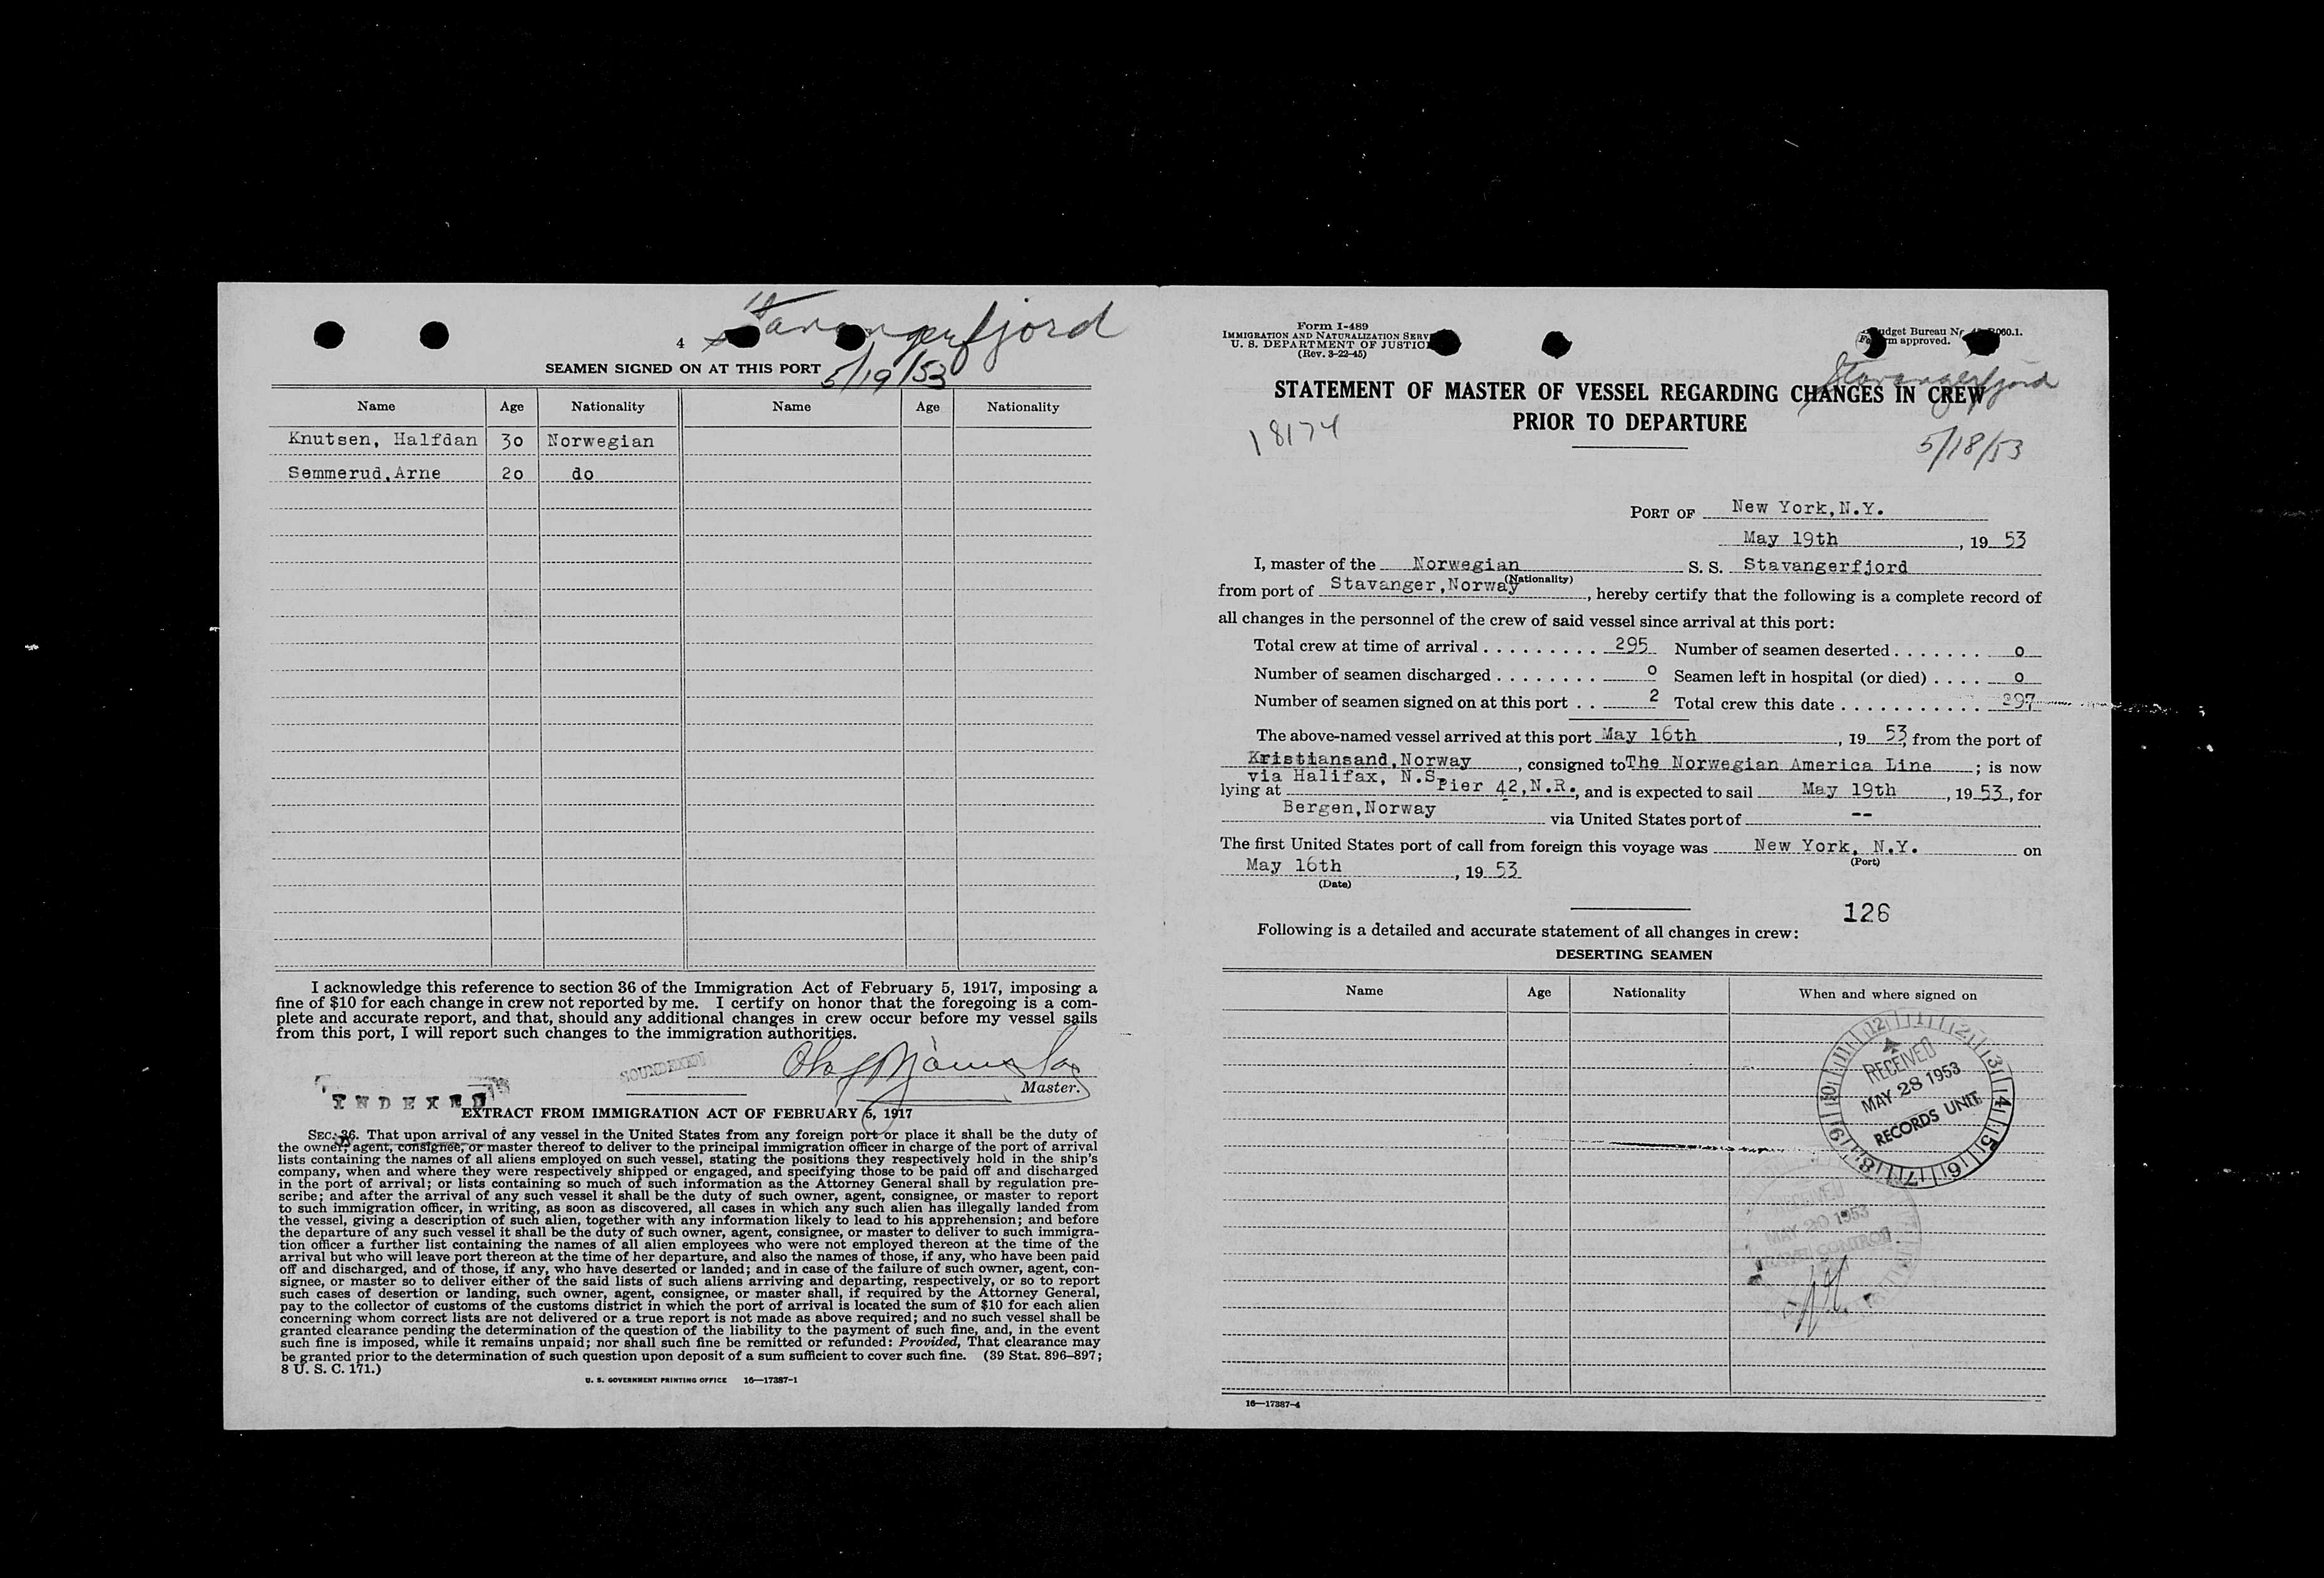 Stavangerfjord
4
SEAMEN SIGNED ON AT THIS PORT
5/19/53
Name Age Nationality Name Age Nationality
Knutsen, Halfdan 30 Norwegian
Semmerud,Arne 20 do
I acknowledge this reference to section 36 of the Immigration Act of February 5, 1917, imposing a
fine of $10 for each change in crew not reported by me. I certify on honor that the foregoing is a com-
plete and accurate report, and that, should any additional changes in crew occur before my vessel sails
from this port, I will report such changes to the immigration authorities.
SOUNDEXED
Master.
INDEXED
EXTRACT FROM IMMIGRATION ACT OF FEBRUARY 5, 1917
SEC. 36. That upon arrival of any vessel in the United States from any foreign port or place it shall be the duty of
the owner, agent, consignee, or master thereof to deliver to the principal immigration officer in charge of the port of arrival
lists containing the names of all aliens employed on such vessel, stating the positions they respectively hold in the ship's
company, when and where they were respectively shipped or engaged, and specifying those to be paid off and discharged
in the port of arrival; or lists containing so much of such information as the Attorney General shall by regulation pre-
scribe; and after the arrival of any such vessel it shall be the duty of such owner, agent, consignee, or master to report
to such immigration officer, in writing, as soon as discovered, all cases in which any such alien has illegally landed from
the vessel, giving a description of such alien, together with any information likely to lead to his apprehension; and before
the departure of any such vessel it shall be the duty of such owner, agent, consignee, or master to deliver to such immigra-
tion officer a further list containing the names of all alien employees who were not employed thereon at the time of the
arrival but who will leave port thereon at the time of her departure, and also the names of those, if any, who have been paid
off and discharged, and of those, if any, who have deserted or landed; and in case of the failure of such owner, agent, con-
signee, or master so to deliver either of the said lists of such aliens arriving and departing, respectively, or so to report
such cases of desertion or landing, such owner, agent, consignee, or master shall, if required by the Attorney General,
pay to the collector of customs of the customs district in which the port of arrival is located the sum of $10 for each alien
concerning whom correct lists are not delivered or a true report is not made as above required; and no such vessel shall be
granted clearance pending the determination of the question of the liability to the payment of such fine, and, in the event
such fine is imposed, while it remains unpaid; nor shall such fine be remitted or refunded: Provided, That clearance may
be granted prior to the determination of such question upon deposit of a sum sufficient to cover such fine. (39 Stat. 896–897;
8 U. S. C. 171.)
U. S. GOVERNMENT PRINTING OFFICE 16—17387-1
Form I-489
IMMIGRATION AND NATURALIZATION SERV
U. S. DEPARTMENT OF JUSTIC
(Rev. 3-22-45)
udget Bureau No. 060.1.
m approved.
Stavangerfjord
STATEMENT OF MASTER OF VESSEL REGARDING CHANGES IN CREW
PRIOR TO DEPARTURE
18174
5/18/53
PORT OF New York,N.Y.
May 19th, 19 53
I, master of the Norwegian S. S. Stavangerfjord
(Nationality)
from port of Stavanger,Norway, hereby certify that the following is a complete record of
all changes in the personnel of the crew of said vessel since arrival at this port:
Total crew at time of arrival . . . . . . . . . 295 Number of seamen deserted . . . . . . . 0
Number of seamen discharged . . . . . . . . 0 Seamen left in hospital (or died) . . . . 0
Number of seamen signed on at this port . . 2 Total crew this date . . . . . . . . . . . 297
The above-named vessel arrived at this port May 16th, 19 53, from the port of
Kristiansand,Norway, consigned to The Norwegian America Line; is now
via Halifax, N.S.
lying at Pier 42,N.R., and is expected to sail May 19th, 19 53, for
Bergen,Norway via United States port of --
The first United States port of call from foreign this voyage was New York, N.Y. on
(Port)
May 16th, 19 53
(Date)
126
Following is a detailed and accurate statement of all changes in crew:
DESERTING SEAMEN
Name Age Nationality When and where signed on
12 1 2 3 4 5 6 7 8 9 10 11
RECEIVED
MAY 28 1953
RECORDS UNIT
RECEIVED
MAY 20 1953
CONTROL
16—17387-4